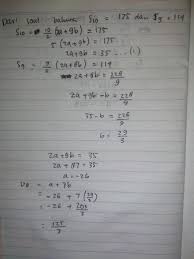 Dari soal bahwa S10 = 175 dan S9 = 119
S10 = 10/2 (2a + 9b) = 175
5 (2a + 9b) = 175
2a + 9b = 35 ... (1)
S9 = 9/2 (2a + 8b) = 119
2a + 8b = 228/9
2a + 9b - b = 228/9
35 - b = 228/9
b = 29/3
2a + 9b = 35
2a + 87 = 35
a = -26
U8 = a + 7b
= -26 + 7 (29/3)
= -26 + 203/3
= 125/3